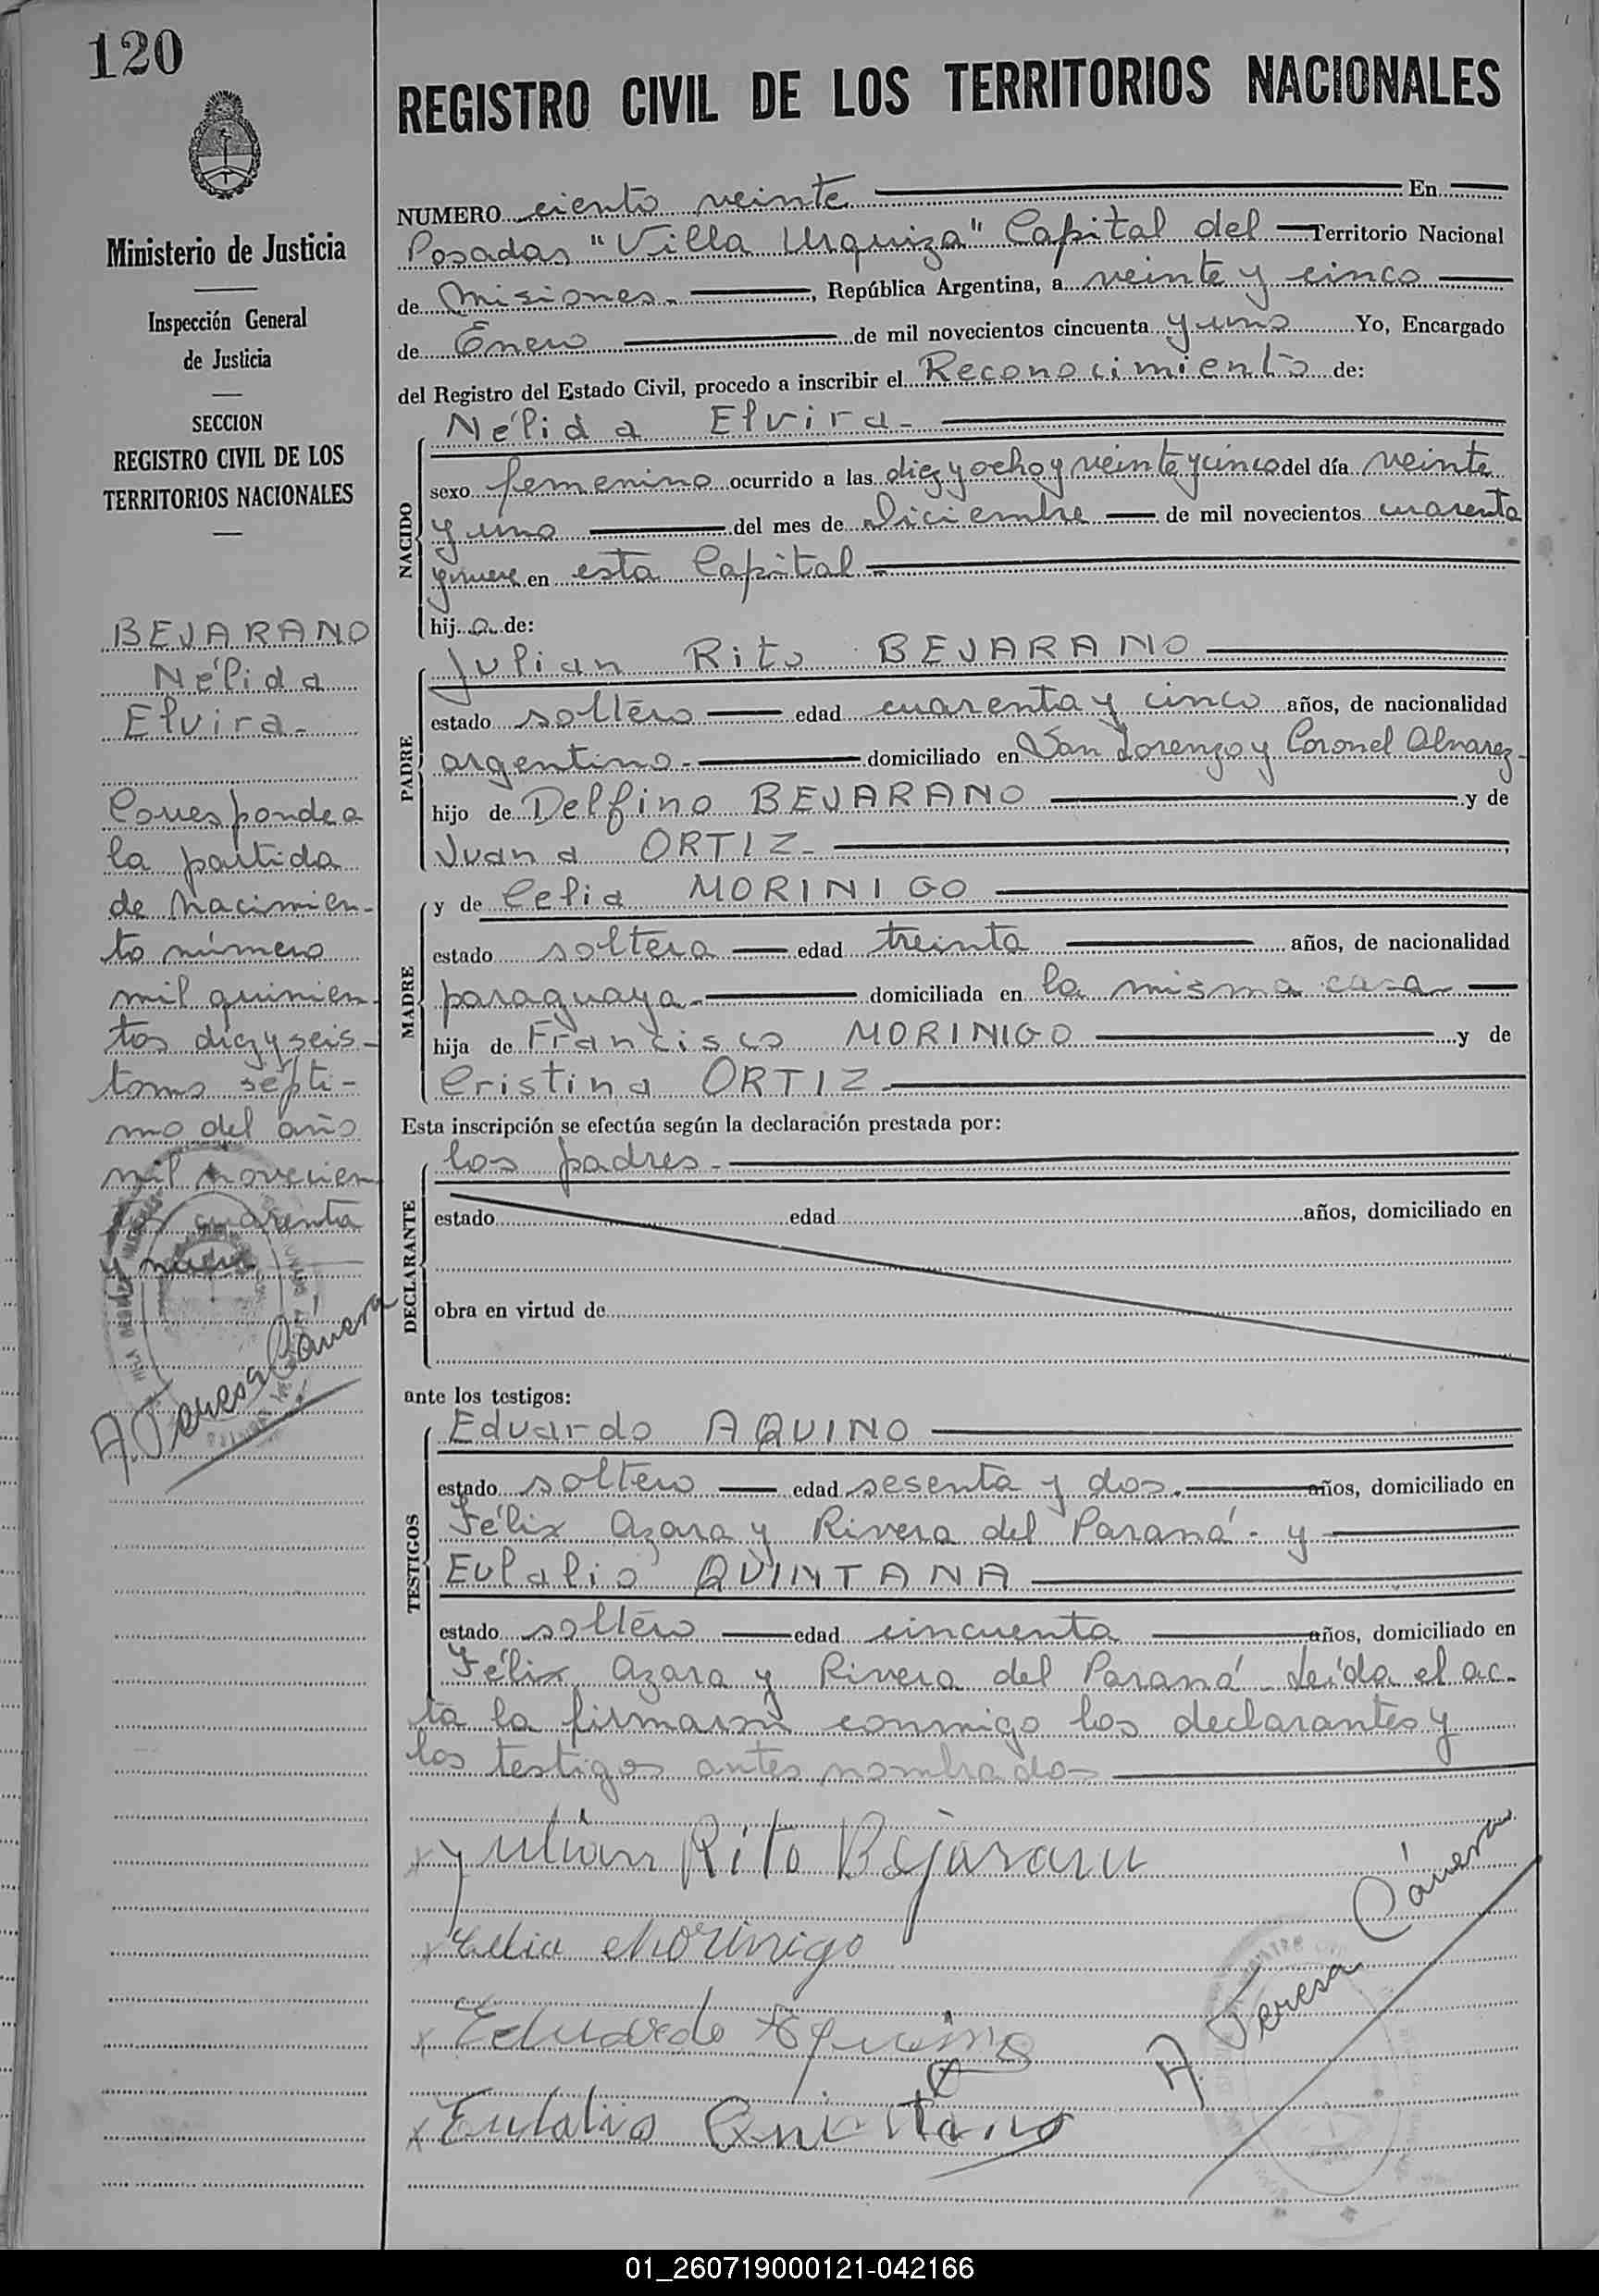 120
REGISTRO CIVIL DE LOS TERRITORIOS NACIONALES
Ministerio de Justicia
Inspección General
de Justicia
SECCION
REGISTRO CIVIL DE LOS
TERRITORIOS NACIONALES
BEJARANO
Nélida
Elvira-
Corresponde a
la partida
de Nacimien-
to número
mil quinien-
tos diez y seis-
tomo sépti-
mo del año
mil novecien
tos cuarenta
y nueve
A. Teresa Cánera
NUMERO ciento veinte En
Posadas "Villa Urquiza" Capital del Territorio Nacional
de Misiones.-, República Argentina, a veinte y cinco
de Enero de mil novecientos cincuenta y uno Yo, Encargado
del Registro del Estado Civil, procedo a inscribir el Reconocimiento de:
NACIDO
Nélida Elvira-
sexo femenino ocurrido a las diez y ocho y veinte y cinco del día veinte
y uno del mes de Diciembre de mil novecientos cuarenta
y nueve en esta Capital-
hij a de:
PADRE
Julian Rito BEJARANO
estado soltero edad cuarenta y cinco años, de nacionalidad
argentino.- domiciliado en San Lorenzo y Coronel Alvarez-
hijo de Delfino BEJARANO y de
Juana ORTIZ-
MADRE
y de Celia MORINIGO
estado soltera edad treinta años, de nacionalidad
paraguaya.- domiciliada en la misma casa
hija de Francisco MORINIGO y de
Cristina ORTIZ-
Esta inscripción se efectúa según la declaración prestada por:
DECLARANTE
los padres-
estado edad años, domiciliado en
obra en virtud de
ante los testigos:
TESTIGOS
Eduardo AQUINO
estado soltero edad sesenta y dos.- años, domiciliado en
Félix Azara y Rivera del Paraná- y
Eulalio QUINTANA
estado soltero edad cincuenta años, domiciliado en
Félix Azara y Rivera del Paraná- Leída el ac-
ta la firmaron conmigo los declarantes y
los testigos antes nombrados
x Julian Rito Bejarano
x Celia Morinigo
x Eduardo Aquino
x Eulalio Quintana
A. Teresa Cánera
01_260719000121-042166